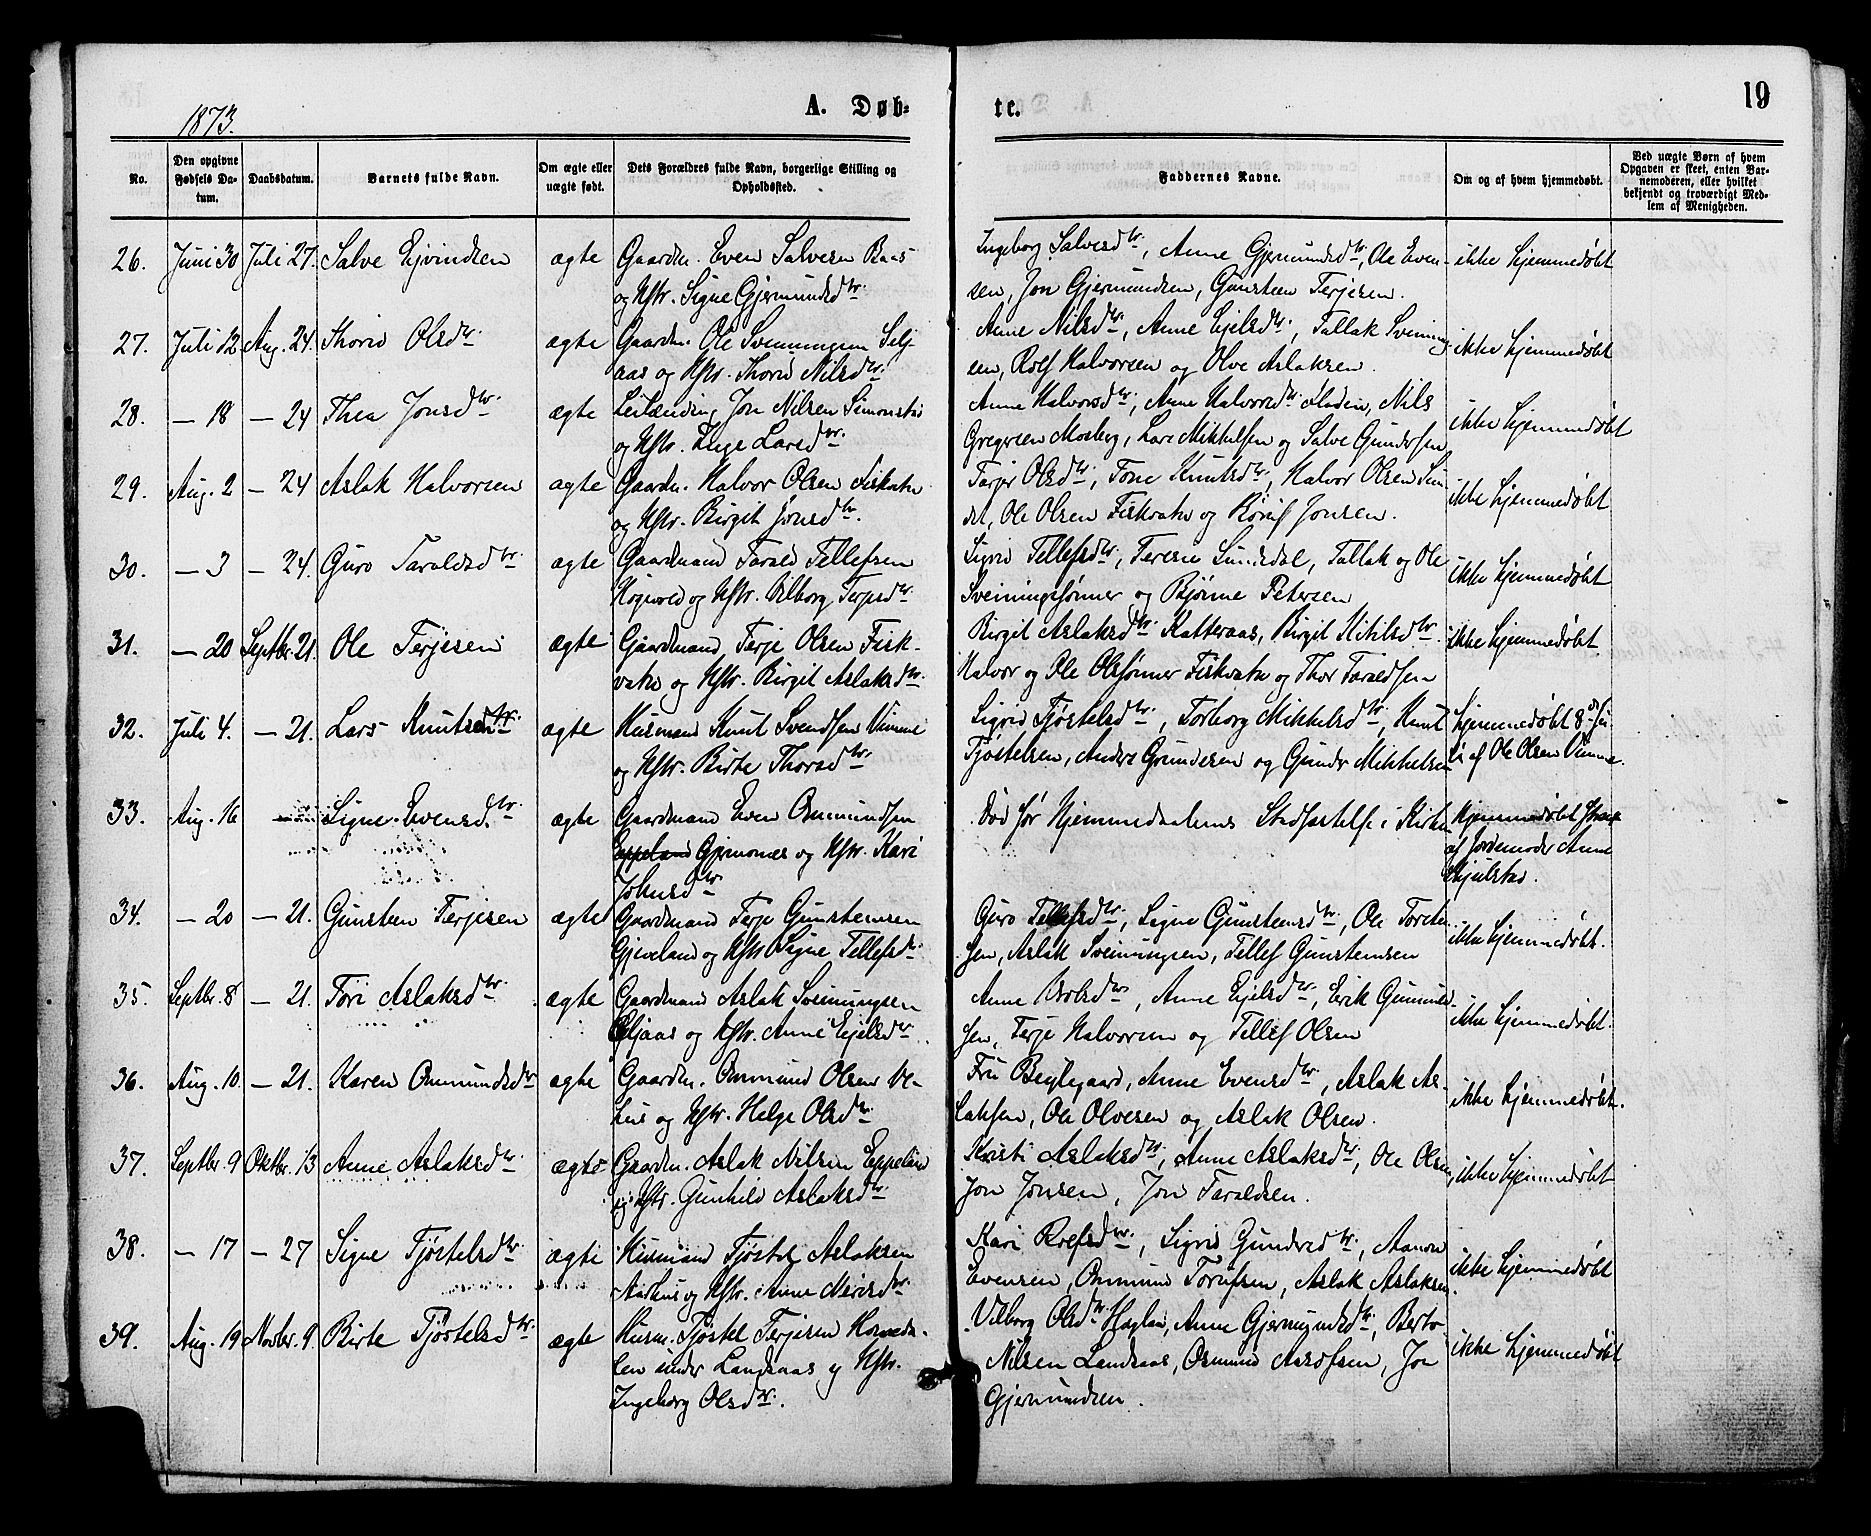 19
1873.
A. Døb-
te.
No.
Den opgivne Fødsels Da-tum.
Daabsdatum.
Barnets fulde Navn.
Om ægte eller uægte født.
Dets Forældres fulde Navn, borgerlige Stilling og Opholdssted.
Faddernes Navne.
Om og af hvem hjemmedøbt.
Ved uægte Børn af hvem Opgaven er skeet, enten Bar-nemoderen, eller hvilket bekjendt og troværdigt Med-lem af Menigheden.
26. Juni 30 Juli 27. Salve Ejvindsen ægte Gaardm. Even Salvesen Baas Ingeborg Salvesdtr, Anne Gjermundsdtr, Ole Even- ikke hjemmedøbt
og Hstr. Signe Gjermundsdtr. sen, Jon Gjermundsen, Gunsteen Terjesen.
27. Juli 12 Aug. 24. Thorid Olsdtr. ægte Gaardm. Ole Sveinungsen Selj- Anne Nilsdtr, Anne Ejelsdtr, Tallak Sveinung- ikke hjemmedøbt
aas og Hstr. Thorid Nilsdtr. sen, Rolf Halvorsen og Olve Aslaksen.
28. — 18 — 24 Thea Jonsdtr. ægte Leilænding Jon Nilsen Simonstad Anne Halvorsdtr, Anne Halvorsdtr, Nils ikke hjemmedøbt
og Hstr. Larsdtr. Gregersen Mosberg, Lars Mikkelsen og Salve Gundersen
29. Aug. 2 — 24 Aslak Halvorsen ægte Gaardm. Halvor Olsen Fiskvatn Tarjer Olsdtr, Tone Knutsdtr, Halvor Olsen Sun- ikke hjemmedøbt
og Hstr. Birgit Jonsdtr. det, Ole Olsen Fiskvatn og Jonsen.
30. — 3 — 24. Guro Taraldsdtr ægte Gaardmand Tarald Tellefsen Sigrid Tellefsdtr, Terese Lundedal, Tallak og Ole ikke hjemmedøbt
og Hstr. Vilborg Terjesdtr Sveinungssønner og Bjørnne Petersen
31. — 20 Septbr. 21. Ole Terjesen ægte Gaardmand Terje Olsen Fisk- Birgit Aslaksdtr Katteraas, Birgit Kitilsdtr. ikke hjemmedøbt
vatn og Hstr. Birgit Aslaksdtr. Halvor og Ole Olssønner Fiskvatn og Thor Taraldsen
32. Juli 4. — 21. Lars Knutsen ægte Husmand Knut Svendsen Vimme Sigrid Tjøstelsdtr, Torborg Mikkelsdtr, Knut hjemmedøbt 8de Ju-
og Hstr. Birte Thorsdtr Tjøstelsen, Anders Gundersen og Gunder Mikkelsen li af Ole Olsen Vimme.
33. Aug. 16 Signe Evensdtr. ægte Gaardmand Even Osmundsen Død før Hjemmedaabens Stadfæstelse i Kirken Hjemmedøbt strax
Eppeland Gjermones og Hstr. Kari af Jordemoder Anne
Johnsdtr Skjulstad.
34. — 20 — 21. Gunsteen Terjesen ægte Gaardmand Terje Gunstensen Guro Tellefsdtr, Signe Gunstensdtr, Ole Torsten- ikke hjemmedøbt.
Gjeveland og Hstr. Signe Tellefsdtr. sen, Aslak Sveinungsen, Tellef Gunstensen
35. Septbr. 8 — 21. Tori Aslaksdtr. ægte Gaardmand Aslak Sveinungsen Anne Olsdtr, Anne Ejelsdtr, Erik Gunnuls- ikke hjemmedøbt.
Seljaas og Hstr. Anne Ejelsdtr. sen, Terje Halvorsen og Tellef Olsen
36. Aug. 10. — 21. Karen Osmundsdtr ægte Gaardm. Osmund Olsen Ve- Fru Beylegaard, Anne Evensdtr, Aslak As- ikke hjemmedøbt.
hus og Hstr. Helge Olsdtr. laksen, Ole Olvesen og Aslak Olsen.
37. Septbr. 9 Oktbr. 13 Anne Aslaksdtr ægte Gaardm. Aslak Nilsen Eppeland Kristi Aslaksdtr, Anne Aslaksdtr, Ole Olsen, ikke hjemmedøbt
og Hstr. Gunhild Aslaksdtr Jon Jonsen, Jon Taraldsen.
38. — 17 — 27 Signe Tjøstelsdtr. ægte Husmand Tjøstel Aslaksen Kari Rolfsdtr, Sigrid Gundersdtr, Aanon ikke hjemmedøbt
Aashus og Hstr. Anne Nirisdtr Evensen, Osmund Torufsen, Aslak Aslaksen.
39. Aug. 19 Novbr. 9. Birte Tjøstelsdtr. ægte Husm. Tjøstel Terjesen Vilborg Olsdtr Haglan, Anne Gjermundsdtr, Berto ikke hjemmedøbt
len under Landsaas og Hstr. Nilsen Landsaas, Osmund Asrofsen, Jon
Ingeborg Olsdtr. Gjermundsen.